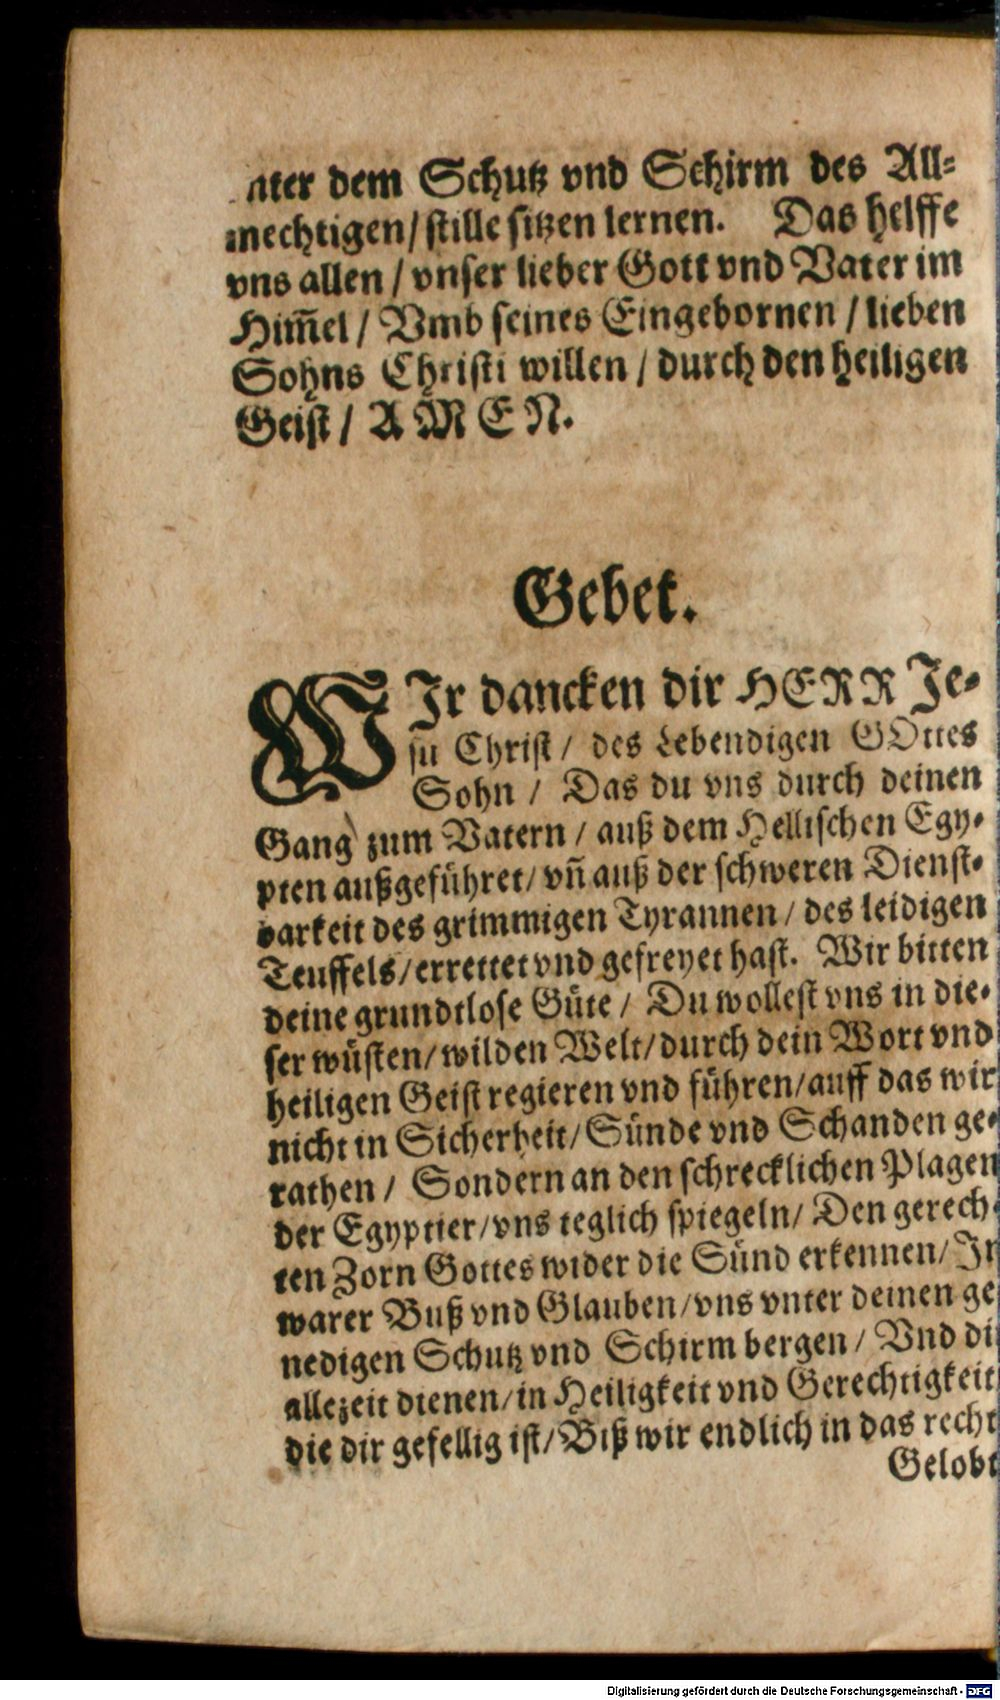 nter dem Schutz vnd Schirm des All-
mechtigen/ stille sitzen lernen. Das helffe
vns allen / vnser lieber Gott vnd Vater im
Him̃el / Vmb seines Eingebornen / lieben
Sohns Christi willen / durch den heiligen
Geist / A M E N.
Gebet.
WIr dancken dir HERR Je-
su Christ / des Lebendigen GOttes
Sohn / Das du vns durch deinen
Gang zum Vatern / auß dem Hellischen Egy-
pten außgeführet/ vñ auß der schweren Dienst-
barkeit des grimmigen Tyrannen / des leidigen
Teuffels/ errettet vnd gefreyet hast. Wir bitten
deine grundtlose Güte / Du wollest vns in die-
ser wüsten/ wilden Welt/ durch dein Wort vnd
heiligen Geist regieren vnd führen/ auff das wir
nicht in Sicherheit/ Sünde vnd Schanden ge-
rathen / Sondern an den schrecklichen Plagen
der Egyptier/ vns teglich spiegeln/ Den gerech-
ten Zorn Gottes wider die Sünd erkennen/ In
warer Buß vnd Glauben/ vns vnter deinen ge
nedigen Schutz vnd Schirm bergen / Vnd di
allezeit dienen/ in Heiligkeit vnd Gerechtigkeit
die dir gefellig ist/ Biß wir endlich in das recht
Gelobt
Digitalisierung gefördert durch die Deutsche Forschungsgemeinschaft - DFG